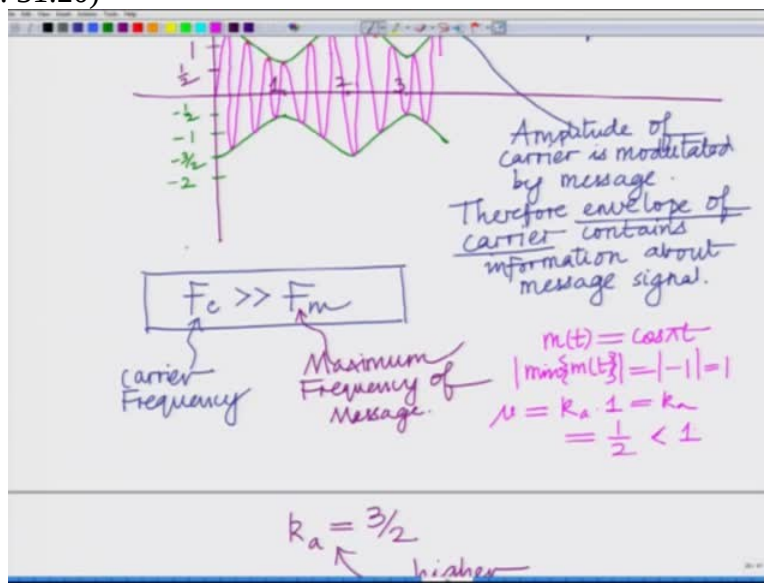 : 31:20)
1
1/2
1 2 3
-1/2
-1
-3/2
-2
Amplitude of
carrier is modulated
by message.
Therefore envelope of
carrier contains
information about
message signal.
Fc >> Fm
Carrier
Frequency
Maximum
Frequency of
Message.
m(t) = cosπt
|min{m(t)}| = |-1| = 1
μ = ka · 1 = ka
= 1/2 < 1
ka = 3/2
higher